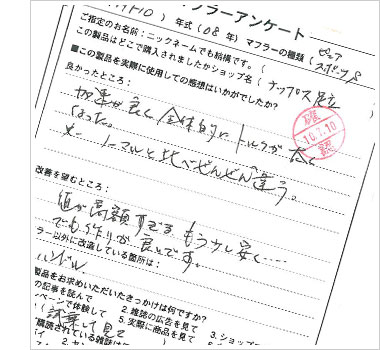 マフラーアンケート
年式（08年）マフラーの種類
ご指定のお名前：ニックネームでも結構です。（
この製品はどこで購入されましたかショップ名（ナップス足立
■この製品を実際に使用しての感想はいかがでしたか？
良かったところ：
加速が良く全体的にトルクが太く
なった。
ノーマルと比べぜんぜん違う。
10.7.10
改善を望むところ：
値が高額すぎる もう少し安く…
でも作りが良いです。
ラー以外に改造している箇所は：
ハンドル
製品をお求めいただいたきっかけは何ですか？
の記事を読んで 2. 雑誌の広告を見て 3. ショッ
ページで体験して 5. 実際に商品を見て
試乗して見て
購読されている雑誌は